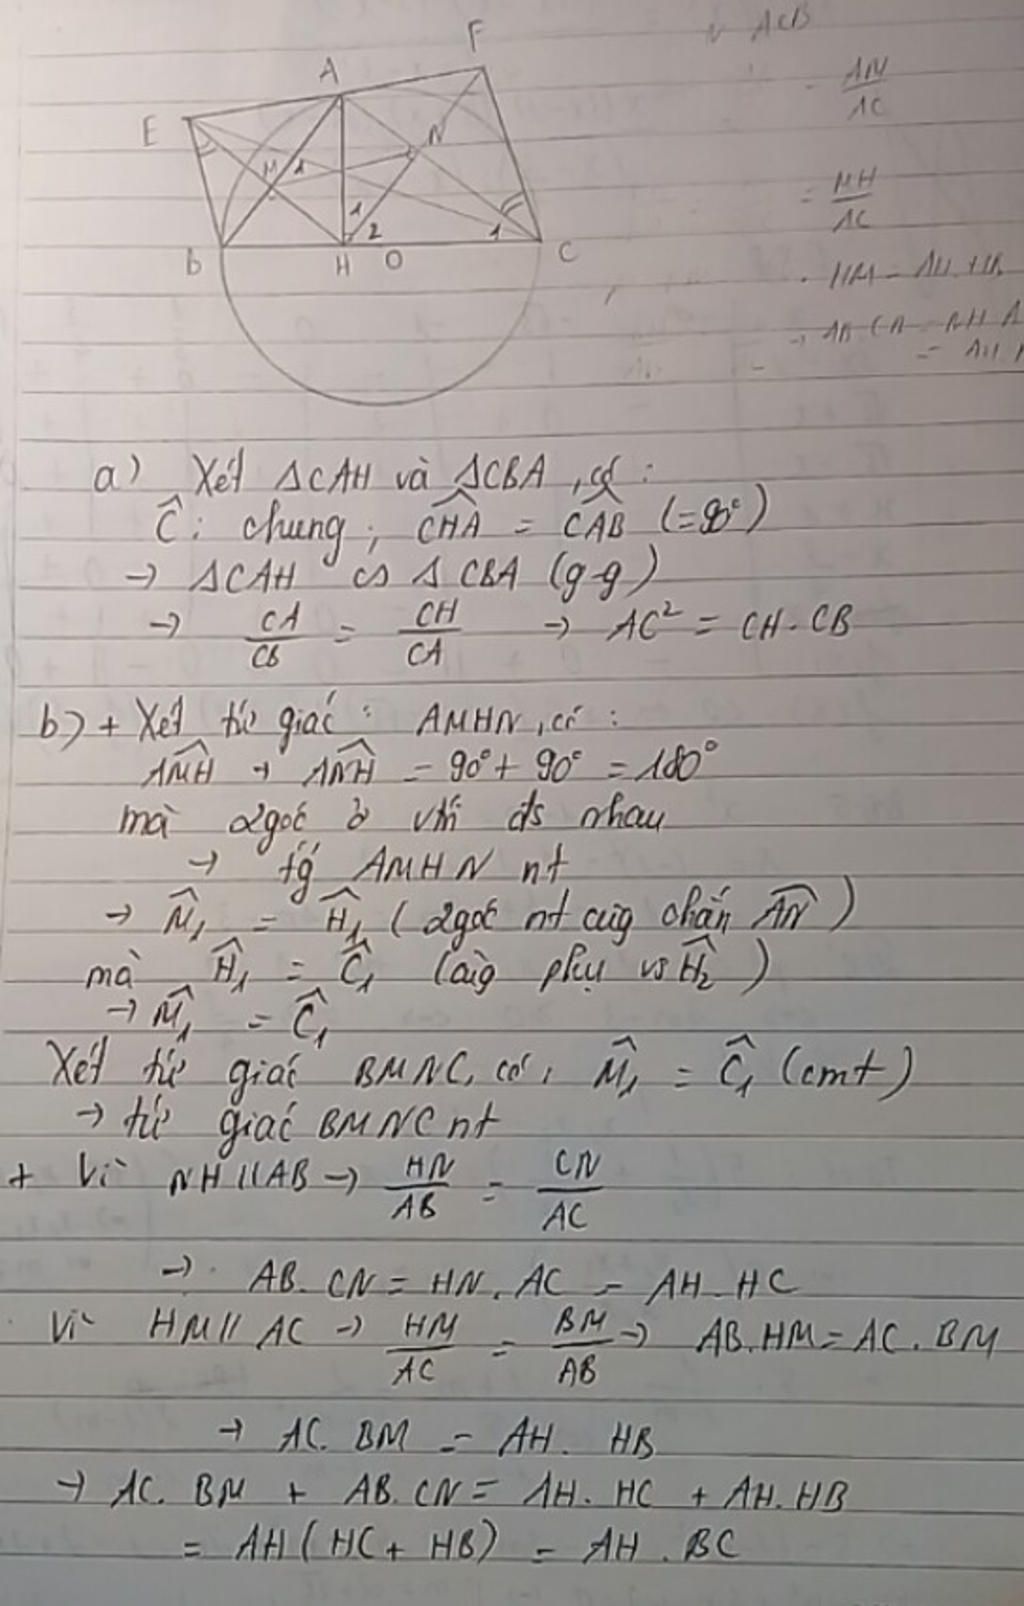 F
A
E
N
M
1
1
2
1
B
H
O
C
ACB
AN
AC
= MH
AC
a) Xét ΔCAH và ΔCBA, có :
Ĉ : chung ; CHA = CAB (=90°)
→ ΔCAH ᔕ ΔCBA (g-g)
→ CA/CB = CH/CA → AC² = CH. CB
b) + Xét tứ giác : AMHN, có :
AMH + ANH = 90° + 90° = 180°
mà 2 góc ở vtrí đs nhau
→ tg AMHN nt
→ M̂₁ = Ĥ₁ (2góc nt cùg chắn AN)
mà Ĥ₁ = Ĉ₁ (cùg phụ vs Ĥ₂)
→ M̂₁ = Ĉ₁
Xét tứ giác BMNC, có : M̂₁ = Ĉ₁ (cmt)
→ tứ giác BMNC nt
+ Vì NH // AB → HN/AB = CN/AC
→ AB. CN = HN. AC = AH. HC
Vì HM // AC → HM/AC = BM/AB → AB.HM = AC. BM
→ AC. BM = AH. HB
→ AC. BM + AB. CN = AH. HC + AH. HB
= AH (HC + HB) = AH. BC